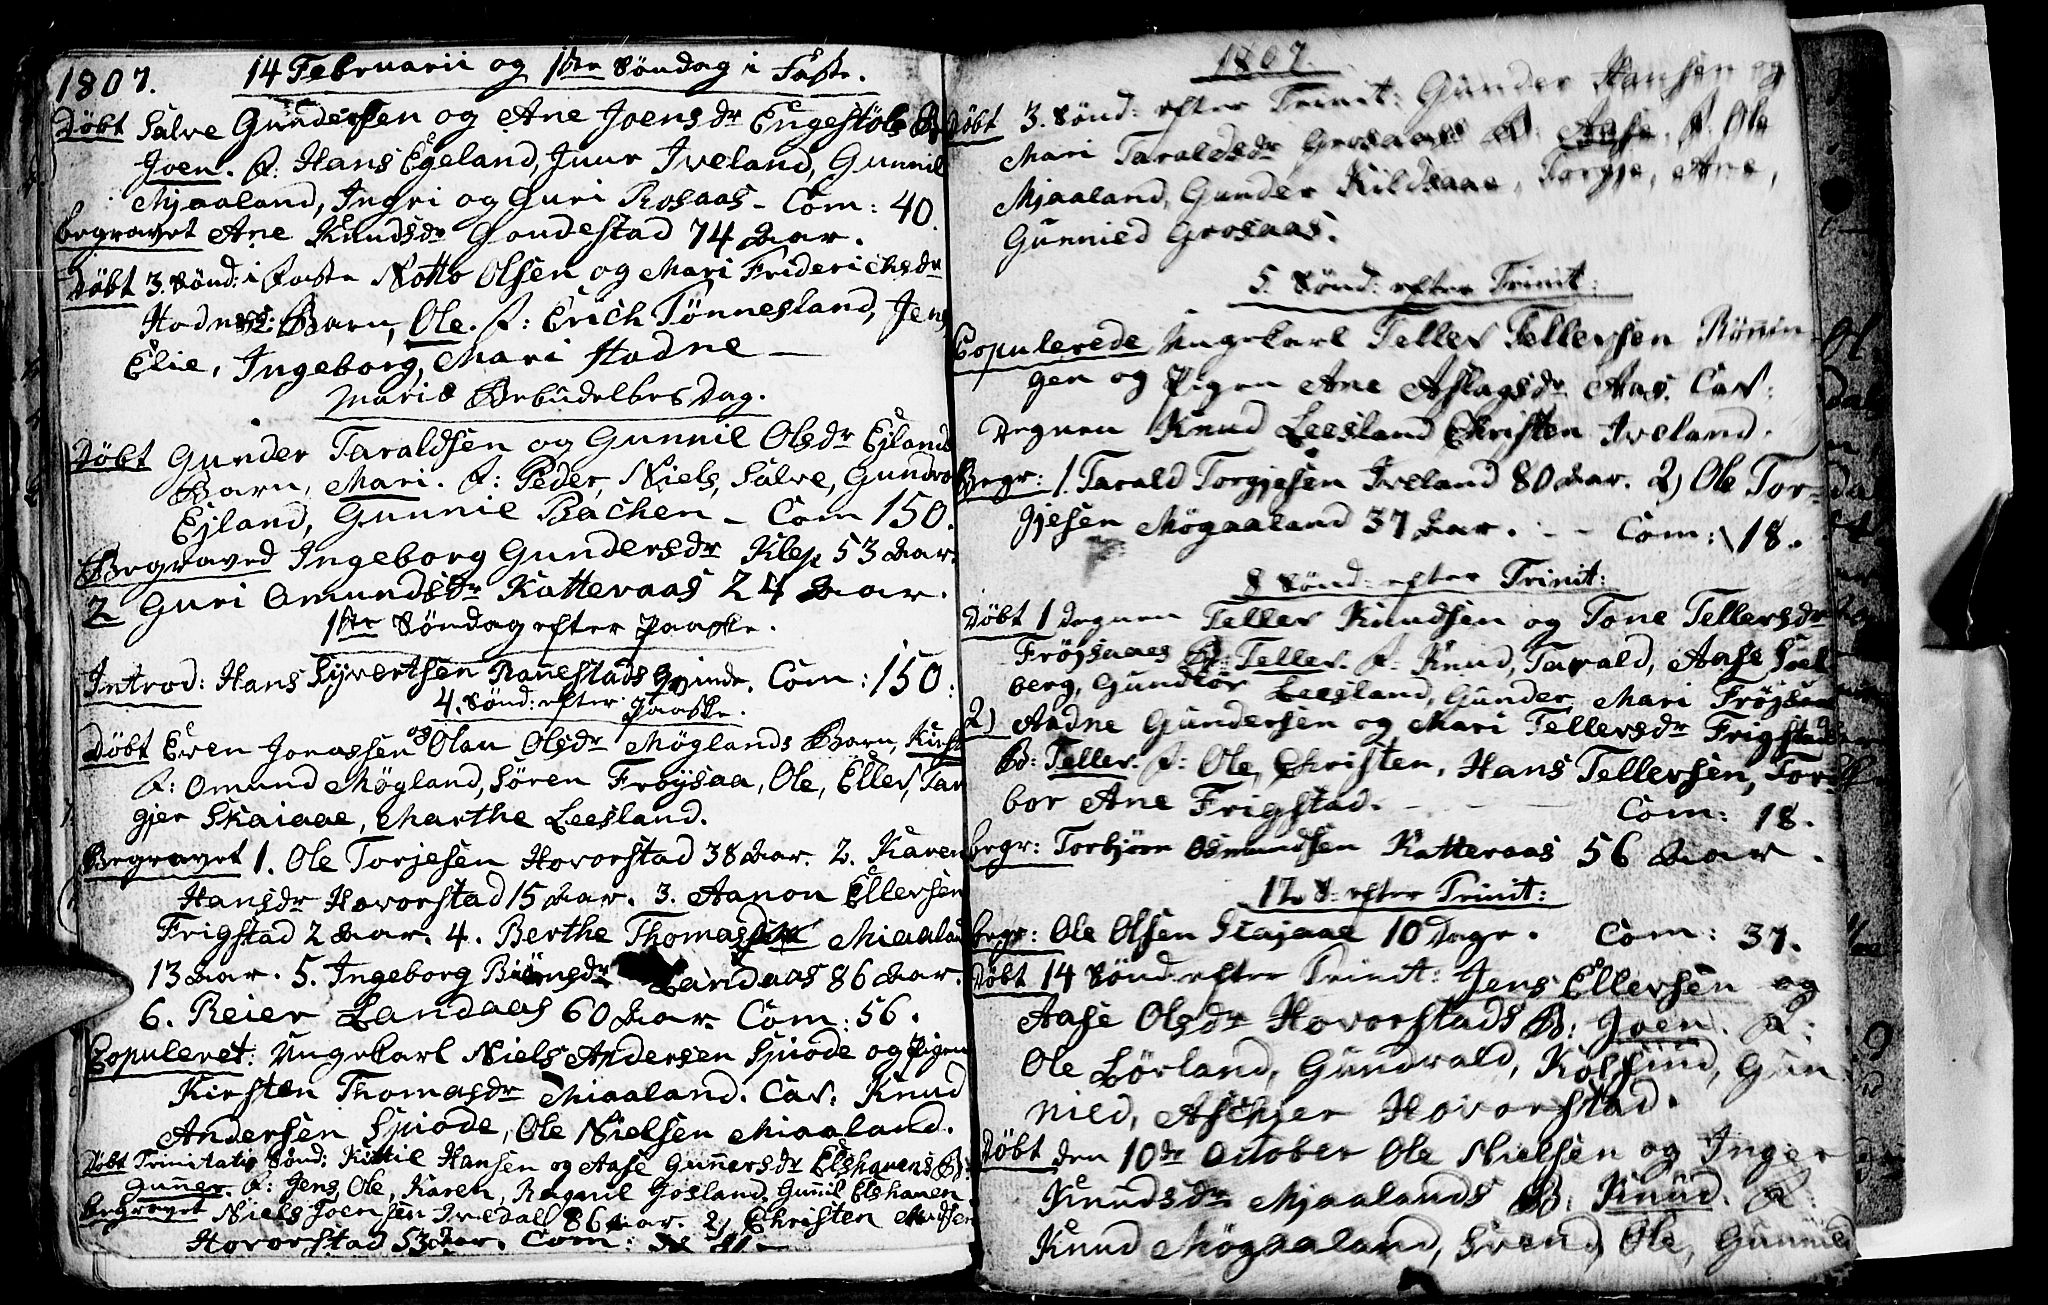 1807. 14 Februarii og 1ste Söndag i Faste.
Döbt Salve Gundersen og Ane Joensdr Engestöls B:
Joen. F: Hans Egeland, Juur Iveland, Gunnil
Mjaaland, Ingri og Guri Rosaas - Com: 40.
Begravet Ane Knudsdr Goudestad 74 Aar.
Döbt 3. Sönd: i Faste Notto Olsen og Mari Friderichsdr
Hodnes Barn, Ole. F: Erich Tönnesland, Jens
Elie, Ingeborg, Mari Hodne —
Mariæ Bebudelses Dag.
Döbt Gunder Taraldsen og Gunnil Olsdr Ejlands
Barn, Mari. F: Peder, Niels, Salve, Gundro
Ejland, Gunnil Bachen - Com 150.
Begraved Ingeborg Gundersdr Klep 53 Aar.
2 Guri Omundsdr Katteraas 24 Aar.
1ste Söndag efter Paaske.
Introd: Hans Syvertsen Ranestads Qvinde. Com: 150:
4. Sönd: efter Paaske.
Döbt Even Jonassen og Olau Olsdr Möglands Barn, Kirst
F: Omund Mögland, Sören Fröysaa, Ole, Ellev, Tar
gjer Skaiaae, Marthe Leesland.
Begravet 1. Ole Torjesen Hovorstad 38 Aar. 2. Karen
Hansdr Hovorstad 15 Aar. 3. Aanon Ellefsen
Frigstad 2 Aar. 4. Berthe Thomasdr Miaaland
13 Aar. 5. Ingeborg Biönsdr Landaas 86 Aar.
6. Reier Landaas 60 Aar. Com: 56.
Copuleret: Ungekarl Niels Andersen Spiode og Pigen
Kirsten Thomasdr Miaaland. Cav: Knud
Andersen Spiode, Ole Nielsen Miaaland.
Döbt Trinitatis Sönd: Kittil Hansen og Aase Gunnersdr Elshauens B:
Gunner. F: Jens, Ole, Karen, Ragnil Gosland, Gunnil Elshauen.
Begravet Niels Joensen Ivedall 86 Aar. 2) Christen
Hovorstad 53 Aar. Com:
1807.
Döbt 3. Sönd: efter Trinit: Gunder Hansen og
Mari Taraldsdr Grosaas B: Aase. F: Ole
Mjaaland, Gunder Kildsaae, Torgje, Ane,
Gunnied Grosaas.
5 Sönd: efter Trinit:
Copulerede Ungekarl Tellef Tellefsen Rönnin-
gen og Pigen Ane Aslagsdr Aas. Cav:
Degnen Knud Leesland Christen Iveland.
Begr: 1. Tarald Torgjesen Iveland 80 Aar. 2) Ole Tor-
gjesen Mögaaland 37 Aar. - - Com: 18.
8 Sönd: efter Trinit:
Döbt 1 Degnen Tellef Knudsen og Tone Tellefsdr
Fröjsaaes B: Tellef. F: Knud, Tarald, Aase Soel
berg, Gundlör Leesland, Gunder, Mari Fröjsaa
2) Aadne Gundersen og Mari Tellefsdr Frigstads
B: Tellef. F: Ole, Christen, Hans Tellefsen, Tor-
bor Ane Frigstad. - - - Com: 18.
Begr: Torbjörn Osmundsen Katteraas 56 Aar.
12. S: efter Trinit:
Begr: Ole Olsen Scajaae 10 Dage. Com: 37.
Döbt 14 Sönd: efter Trinit: Jens Ellefsen og
Aase Olsdr Hovorstads B: Joen. F:
Ole Lörland, Gundvald, Kolfiind, Gun
nied, Aschier Hovorstad.
Döbt den 10de October Ole Nielsen og Inger
Knudsdr Mjaalands B: Knud. F:
Knud Mögaaland, Svend, Ole, Gunnild